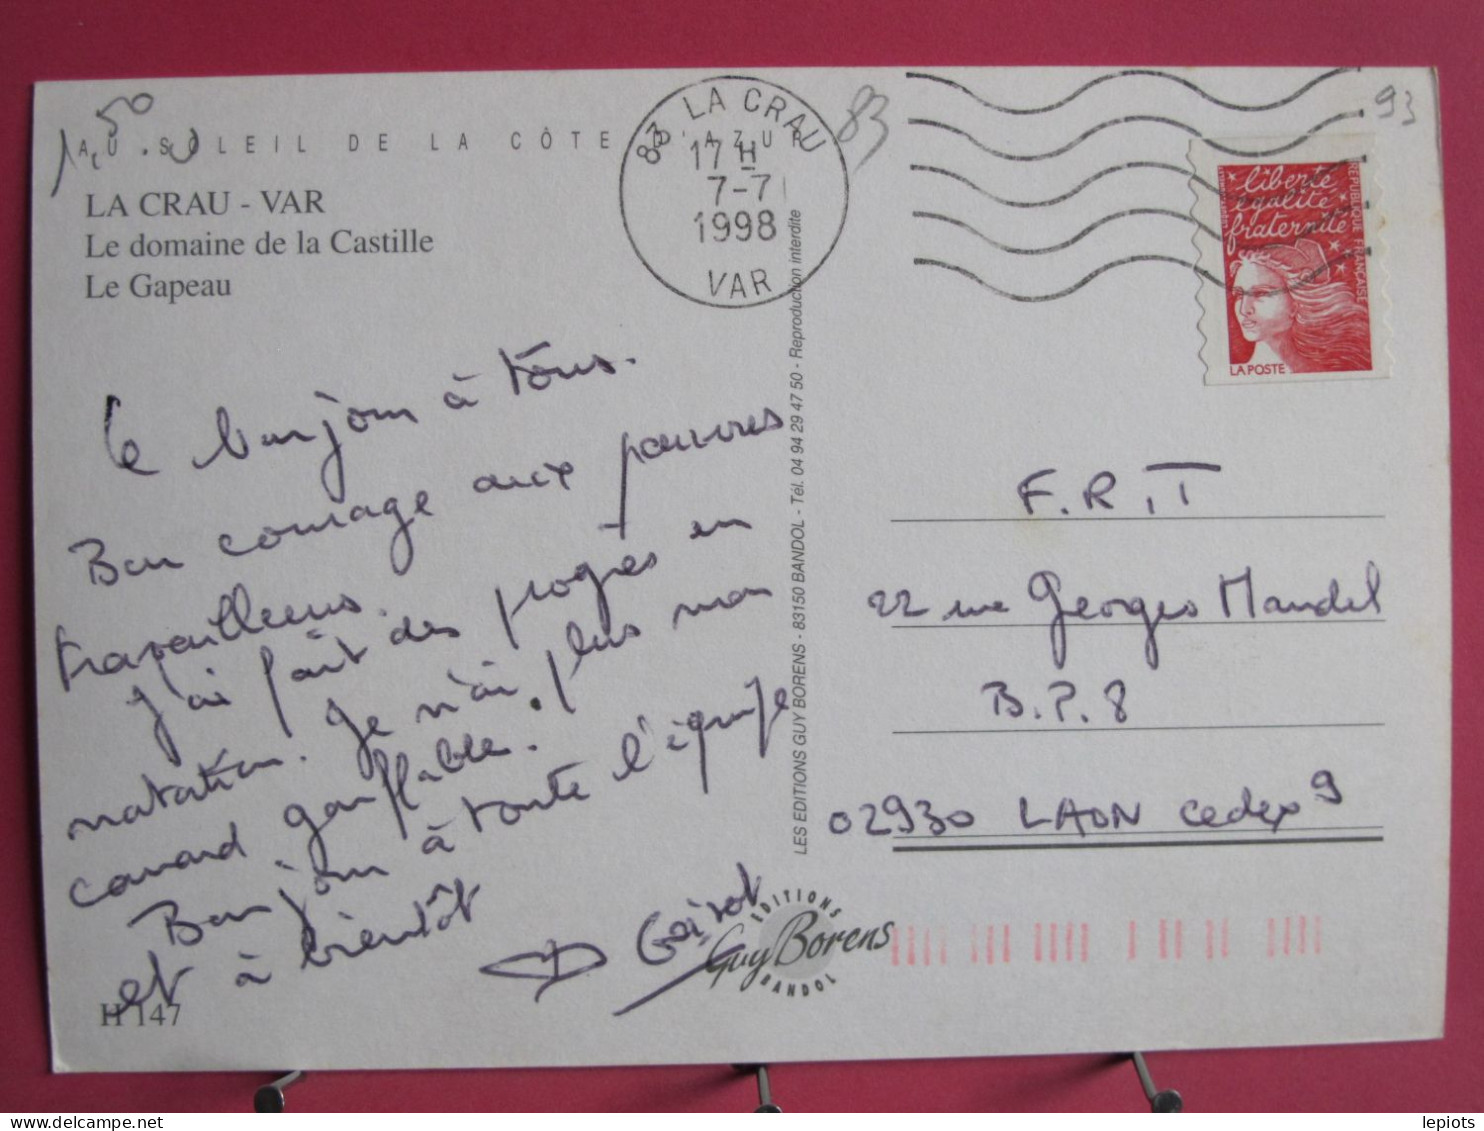 1,50
83
93
AU SOLEIL DE LA CÔTE D'AZUR
LA CRAU - VAR
Le domaine de la Castille
Le Gapeau
83 LA CRAU
17 H
7-7
1998
VAR
liberté
égalité
fraternité
RÉPUBLIQUE FRANÇAISE
LA POSTE
Le bonjour à tous.
Bon courage aux pauvres
travailleurs.
J'ai fait des progrès en
natation. Je n'ai plus mon
canard gonflable.
Bonjour à toute l'équipe
et à bientôt
LES EDITIONS GUY BORENS - 83150 BANDOL - Tél. 04 94 29 47 50 - Reproduction interdite
F.R.T
22 rue Georges Mandel
B.P.8
02930 LAON Cedex 9
EDITIONS
Guy Borens
BANDOL
H 147